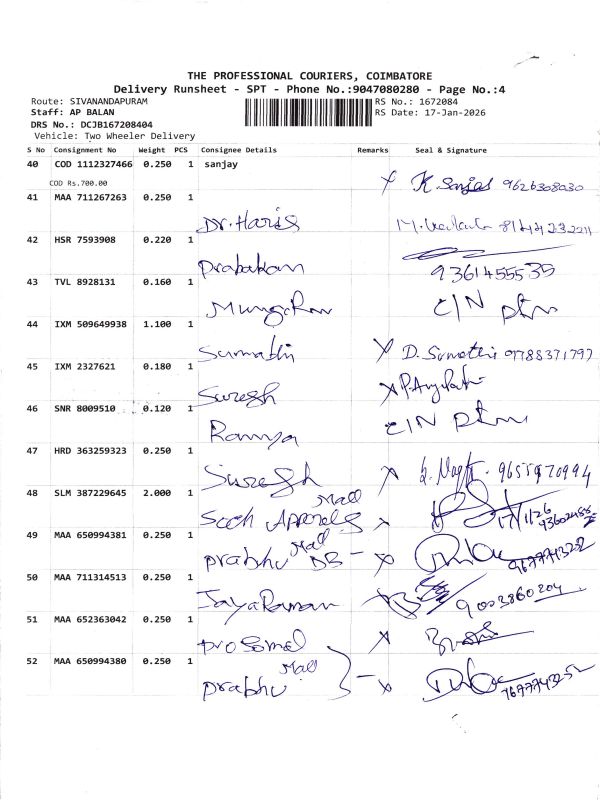 THE PROFESSIONAL COURIERS, COIMBATORE
Delivery Runsheet - SPT - Phone No.:9047080280 - Page No.:4
Route: SIVANANDAPURAM RS No.: 1672084
Staff: AP BALAN RS Date: 17-Jan-2026
DRS No.: DCJB167208404
Vehicle: Two Wheeler Delivery
S No Consignment No Weight PCS Consignee Details Remarks Seal & Signature
40 COD 1112327466 0.250 1 sanjay
COD Rs.700.00 9626308030
41 MAA 711267263 0.250 1
Dr. Haris
42 HSR 7593908 0.220 1
Prabakaran 9361455535
43 TVL 8928131 0.160 1
44 IXM 509649938 1.100 1
Sumathi D. Sumathi
45 IXM 2327621 0.180 1
Suresh
46 SNR 8009510 0.120 1
Ramya
47 HRD 363259323 0.250 1
Suresh
48 SLM 387229645 2.000 1
Mall
17/1/26
49 MAA 650994381 0.250 1
Prabhu Mall DB
50 MAA 711314513 0.250 1
Jayaraman 9003860204
51 MAA 652363042 0.250 1
52 MAA 650994380 0.250 1
Prabhu Mall